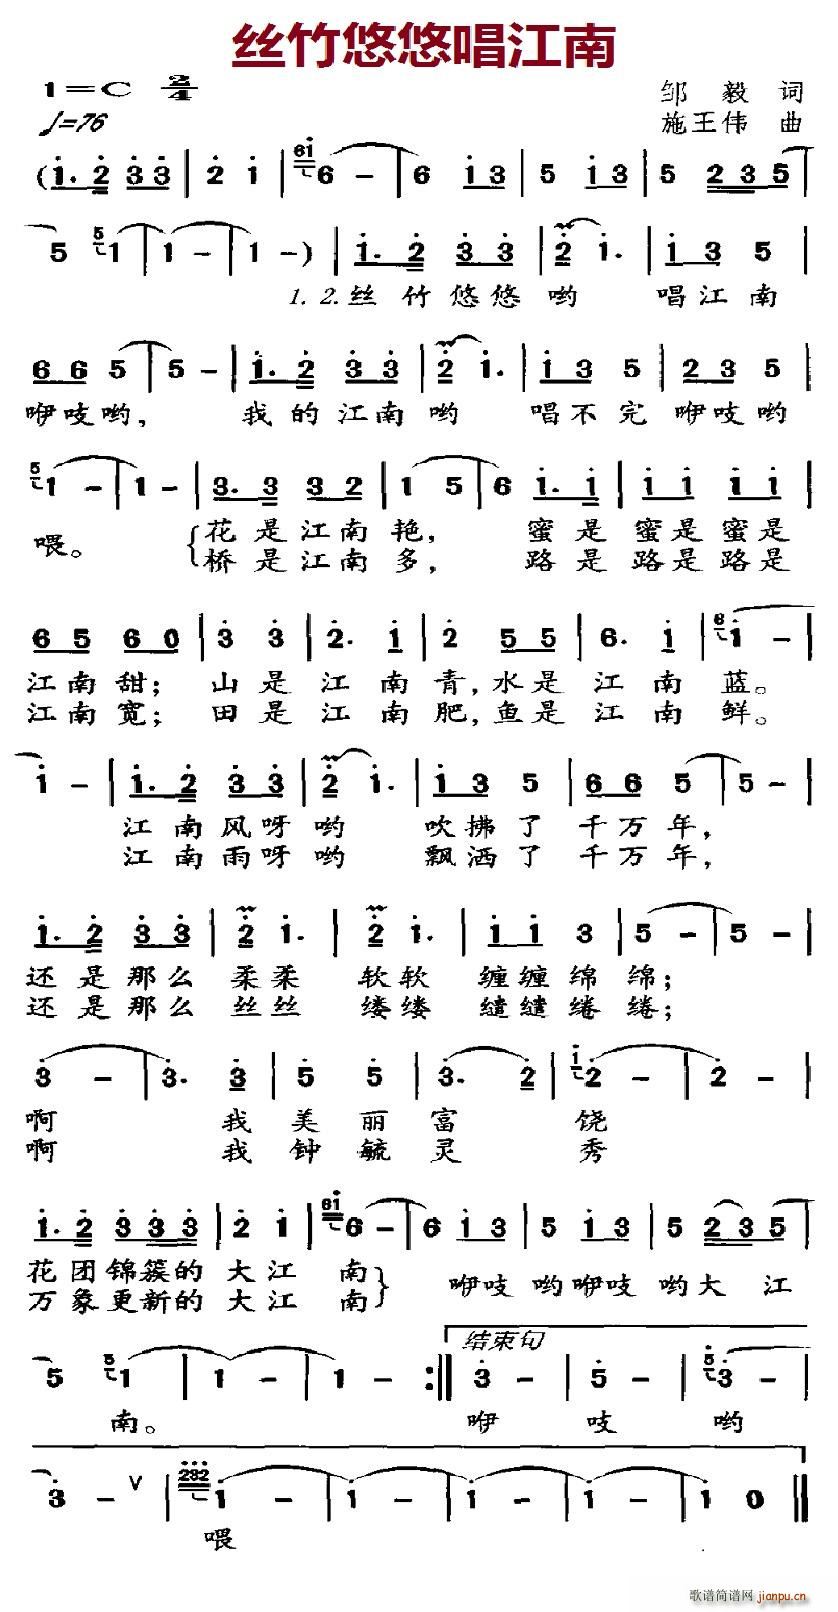 丝竹悠悠唱江南
1=C 2/4
邹 毅 词
♩=76
施王伟 曲
1.2.丝 竹 悠 悠 哟 唱 江 南
咿吱哟， 我 的 江 南 哟 唱 不 完 咿吱哟
喂。 花 是 江 南 艳， 蜜 是 蜜 是 蜜 是
桥 是 江 南 多， 路 是 路 是 路 是
江 南 甜； 山 是 江 南 青，水 是 江 南 蓝。
江 南 宽； 田 是 江 南 肥，鱼 是 江 南 鲜。
江 南 风 呀 哟 吹 拂 了 千 万 年，
江 南 雨 呀 哟 飘 洒 了 千 万 年，
还 是 那 么 柔 柔 软 软 缠 缠 绵 绵；
还 是 那 么 丝 丝 缕 缕 缱 缱 绻 绻；
啊 我 美 丽 富 饶
啊 我 钟 毓 灵 秀
花 团 锦 簇 的 大 江 南
万 象 更 新 的 大 江 南
咿吱 哟咿吱 哟大 江
结束句
南。 咿 吱 哟
喂
歌谱简谱网 jianpu.cn